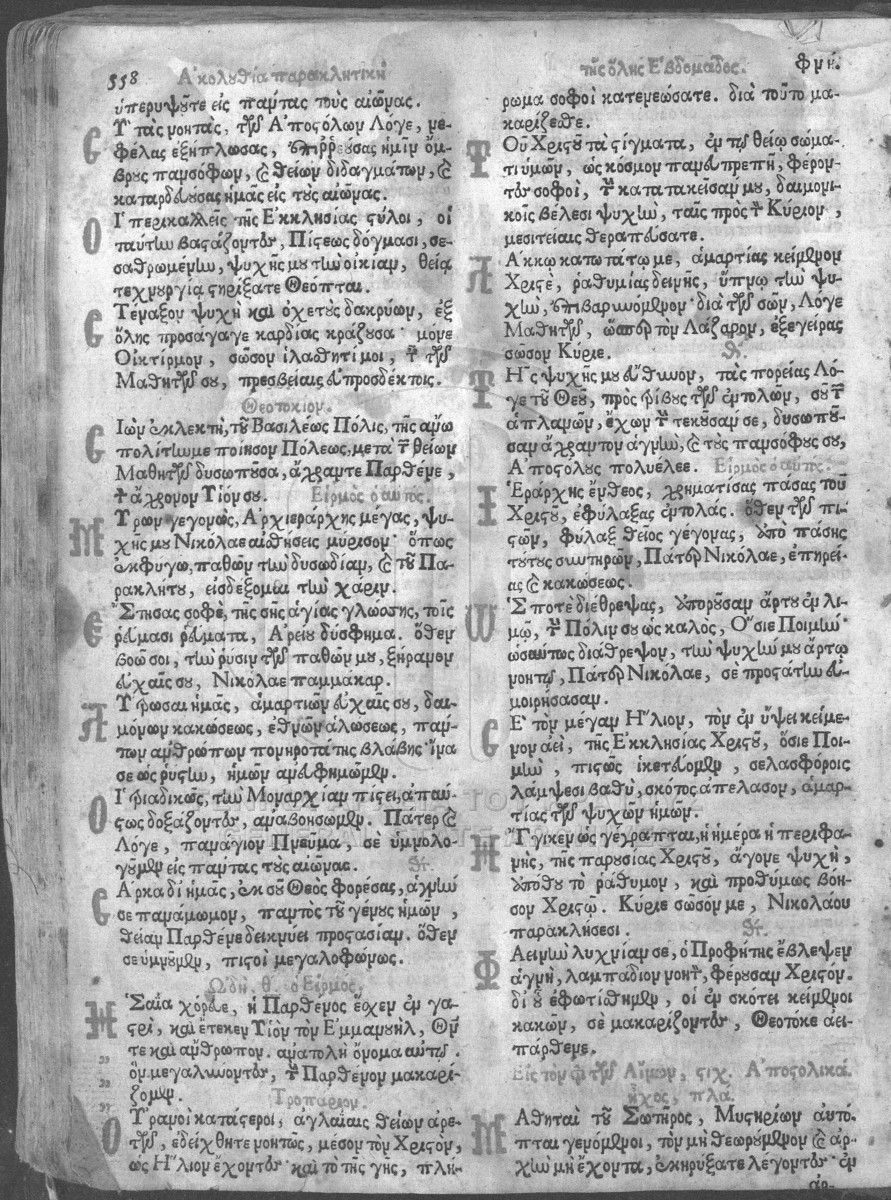 558 Ἀκολουθία παρακλητικὴ
ὑπερυψοῦτε εἰς πάντας τοὺς αἰῶνας.
Σὺ τὰς νοητὰς, τῶν Ἀποστόλων Λόγε, νε-
φέλας ἐξήπλωσας, ἐπιῤῥεύσας ἡμῖν ὄμ-
βρους πανσόφων, καὶ θείων διδαγμάτων, καὶ
καταρδεύσας ἡμᾶς εἰς τοὺς αἰῶνας.
Οἱ περικαλλεῖς τῆς Ἐκκλησίας στύλοι, οἱ
ταύτην βαστάζοντες, Πίστεως δόγμασι, σε-
σαθρωμένην, ψυχῆς μου τὴν οἰκίαν, θείᾳ
τεχνουργίᾳ στηρίξατε Θεόπται.
Στέναξον ψυχὴ καὶ ὀχετοὺς δακρύων, ἐξ
ὅλης προσάγαγε καρδίας κράζουσα· μόνε
Οἰκτίρμον, σῶσον ἱλάσθητί μοι, τῶν
Μαθητῶν σου, πρεσβείαις εὐπροσδέκτοις.
Θεοτοκίον.
Σιὼν ἐκλεκτὴ, τοῦ Βασιλέως Πόλις, τῆς ἄνω
πολίτην με ποίησον Πόλεως, μετὰ τῶν θείων
Μαθητῶν δυσωποῦσα, ἄχραντε Παρθένε,
τὸν ἄχρονον Υἱόν σου. Εἱρμὸς ὁ αὐτός.
Μύρων γεγονὼς, Ἀρχιεράρχης μέγας, ψυ-
χῆς μου Νικόλαε αἰσθήσεις μύρισον· ὅπως
ἐκφύγω, παθῶν τὴν δυσωδίαν, καὶ τοῦ Πα-
ρακλήτου, εἰσδέξομαι τὴν χάριν.
Ἔστησας σοφὲ, τῆς σῆς ἁγίας γλώσσης, τοῖς
ῥεύμασι ῥεύματα, Ἀρείου δύσφημα. ὅθεν
βοῶ σοι, τὴν ῥύσιν τῶν παθῶν μου, ξήρανον
εὐχαῖς σου, Νικόλαε παμμάκαρ.
Λύτρωσαι ἡμᾶς, ἁμαρτιῶν εὐχαῖς σου, δαι-
μόνων κακώσεως, ἐθνῶν ἁλώσεως, πάν-
των ἀνθρώπων πονηροτάτης βλάβης· ἵνα
σε ὡς ῥύστην, ἡμῶν ἀνευφημῶμεν.
Οἱ τριαδικῶς, τὴν Μοναρχίαν πίστει, ἀπαύ-
στως δοξάζοντες, ἀναβοήσωμεν. Πάτερ καὶ
Λόγε, πανάγιον Πνεῦμα, σὲ ὑμνολο-
γοῦμεν εἰς πάντας τοὺς αἰῶνας. Θε.
Σάρκα δι' ἡμᾶς, ἐκ σοῦ Θεὸς φορέσας, ἁγνὴν
σε πανάμωμον, παντὸς τοῦ γένους ἡμῶν,
θείαν Παρθένε δεικνύει προστασίαν. ὅθεν
σε ὑμνοῦμεν, πιστοὶ μεγαλοφώνως.
ᾨδὴ, θ. ὁ Εἱρμός.
Ἡσαΐα χόρευε, ἡ Παρθένος ἔσχεν ἐν γα-
στρὶ, καὶ ἔτεκεν Υἱὸν τὸν Ἐμμανουὴλ, Θεόν
τε καὶ ἄνθρωπον. ἀνατολὴ ὄνομα αὐτῷ.
ὃν μεγαλύνοντες, τὴν Παρθένον μακαρί-
ζομεν. Τροπάριον.
Οὐρανοὶ κατάστεροι, ἀγλαΐαις θείων ἀρε-
τῶν, ἐδείχθητε νοητῶς, μέσον τὸν Χριστὸν,
ὡς Ἥλιον ἔχοντες· καὶ τὸ τῆς γῆς, πλή-
τῆς ὅλης Ἑβδομάδος. φμή.
ρωμα σοφοὶ κατενεώσατε. διὰ τοῦτο μα-
καρίζεσθε.
Τοῦ Χριστοῦ τὰ στίγματα, ἐν τῷ θείῳ σώμα-
τι ὑμῶν, ὡς κόσμον πανευπρεπῆ, φέρον-
τες σοφοὶ, τὴν κατατακεῖσάν μου, δαιμονι-
κοῖς βέλεσι ψυχὴν, ταῖς πρὸς τὸν Κύριον,
μεσιτείαις θεραπεύσατε.
Λάκκῳ κατωτάτῳ με, ἁμαρτίας κείμενον
Χριστὲ, ῥαθυμίας δεινῆς, ὕπνῳ τὴν ψυ-
χὴν, ἐπιβαρυνόμενον· διὰ τῶν σῶν, Λόγε
Μαθητῶν, ὥσπερ τὸν Λάζαρον, ἐξεγείρας
σῶσον Κύριε. Θε.
Τῆς ψυχῆς μου εὔθυνον, τὰς πορείας Λό-
γε τοῦ Θεοῦ, πρὸς τρίβους τῶν ἐντολῶν, σοῦ τῶν
ἁπλανῶν, ἔχων τὴν τεκοῦσάν σε, δυσωποῦ-
σαν ἄχραντον ἁγνὴν, καὶ τοὺς πανσόφους σου,
Ἀποστόλους πολυέλεε. Εἱρμὸς ὁ αὐτός.
Ἱεράρχης ἔνθεος, χρηματίσας πάσας τοῦ
Χριστοῦ, ἐφύλαξας ἐντολάς. ὅθεν τῶν πι-
στῶν, φύλαξ θεῖος γέγονας, ὑπὸ πάσης
τούτους σωτηρῶν, Πάτερ Νικόλαε, ἐπηρεί-
ας καὶ κακώσεως.
Ὥς ποτε διέθρεψας, ἀποροῦσαν ἄρτου ἐν λι-
μῷ, τὴν Πόλιν σου ὡς καλὸς, Ὅσιε Ποιμὴν,
ὡσαύτως διάθρεψον, τὴν ψυχήν μου ἄρτῳ
νοητῷ, Πάτερ Νικόλαε, σὲ προστάτην εὐ-
μοιρήσασαν.
Σὲ τὸν μέγαν Ἥλιον, τὸν ἐν ὕψει κείμε-
νον ἀεὶ, τῆς Ἐκκλησίας Χριστοῦ, ὅσιε Ποι-
μὴν, πιστῶς ἱκετεύομεν, σελασφόροις
λάμψεσι βαθὺ, σκότος ἀπέλασον, ἁμαρ-
τίας τῶν ψυχῶν ἡμῶν.
Ἤγγικεν ὡς γέγραπται, ἡ ἡμέρα ἡ περιφα-
νὴς, τῆς παρουσίας Χριστοῦ, ἄγονε ψυχὴ,
ἀπόθου τὸ ῥάθυμον, καὶ προθύμως βόη-
σον Χριστῷ. Κύριε σῶσόν με, Νικολάου
παρακλήσεσι. Θε.
Φαεινὴν λυχνίαν σε, ὁ Προφήτης ἔβλεψεν
ἁγνὴ, λαμπάδιον νοητῶς, φέρουσαν Χριστόν.
δι' οὗ ἐφωτίσθημεν, οἱ ἐν σκότει κείμενοι
κακῶν, σὲ μακαρίζοντες, Θεοτόκε ἀει-
πάρθενε.
Εἰς τὸν στί τῶν Αἴνων, στιχ. Ἀποστολικά.
ἦχος, πλά.
Μαθηταὶ τοῦ Σωτῆρος, Μυστηρίων αὐτό-
πται γενόμενοι, τὸν μὴ θεωρούμενον καὶ ἀρ-
χὴν μὴ ἔχοντα, ἐκηρύξατε λέγοντες· ἐν
ἀρ-